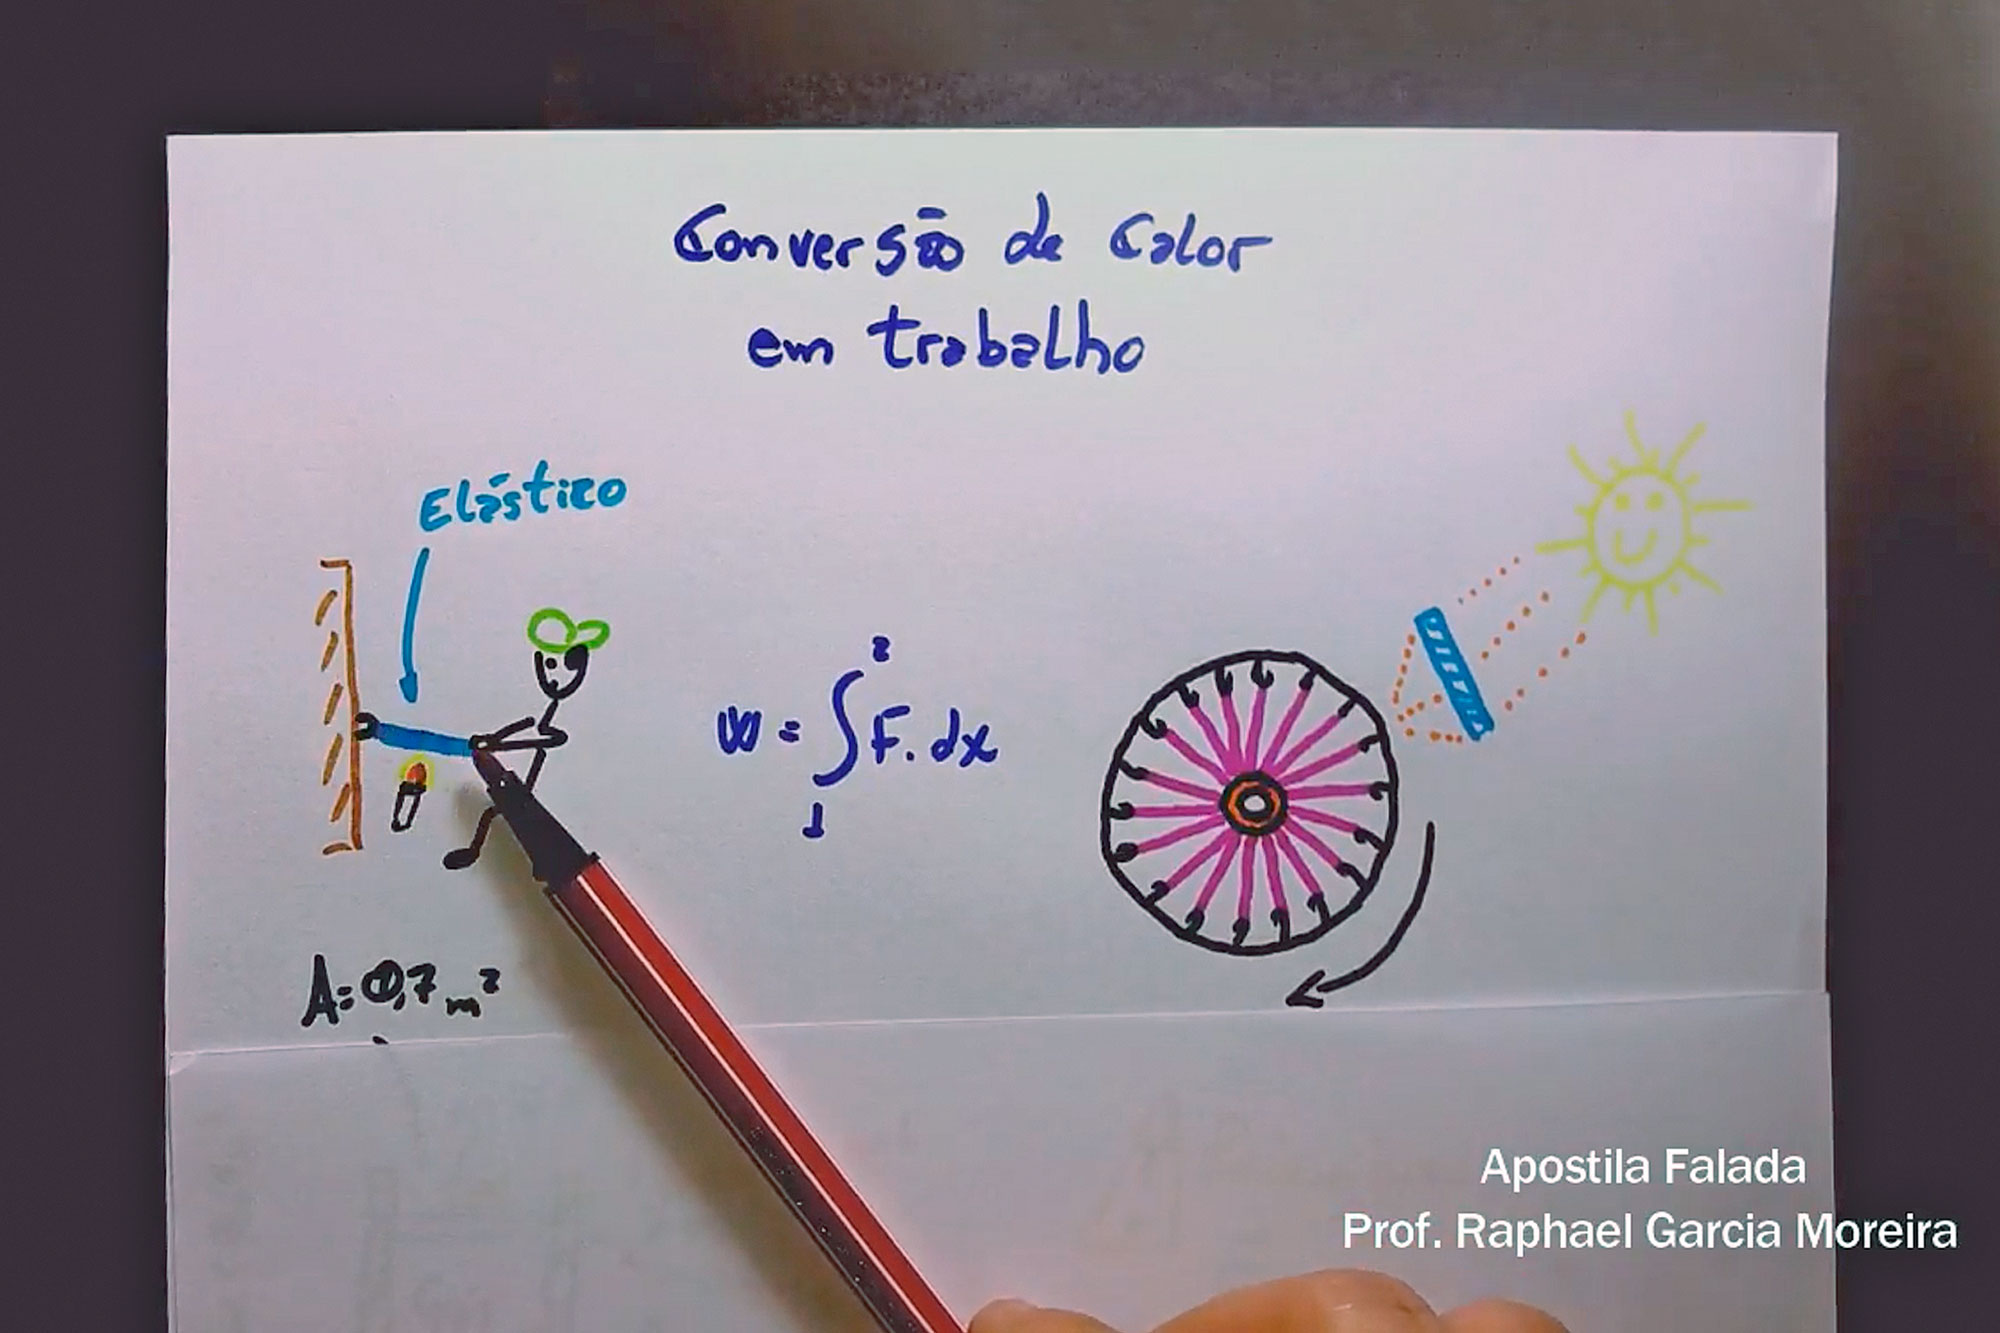 Conversão de Calor
em trabalho
Elástico
W = ∫₁² F. dx
A = 0,7 m²
Apostila Falada
Prof. Raphael Garcia Moreira